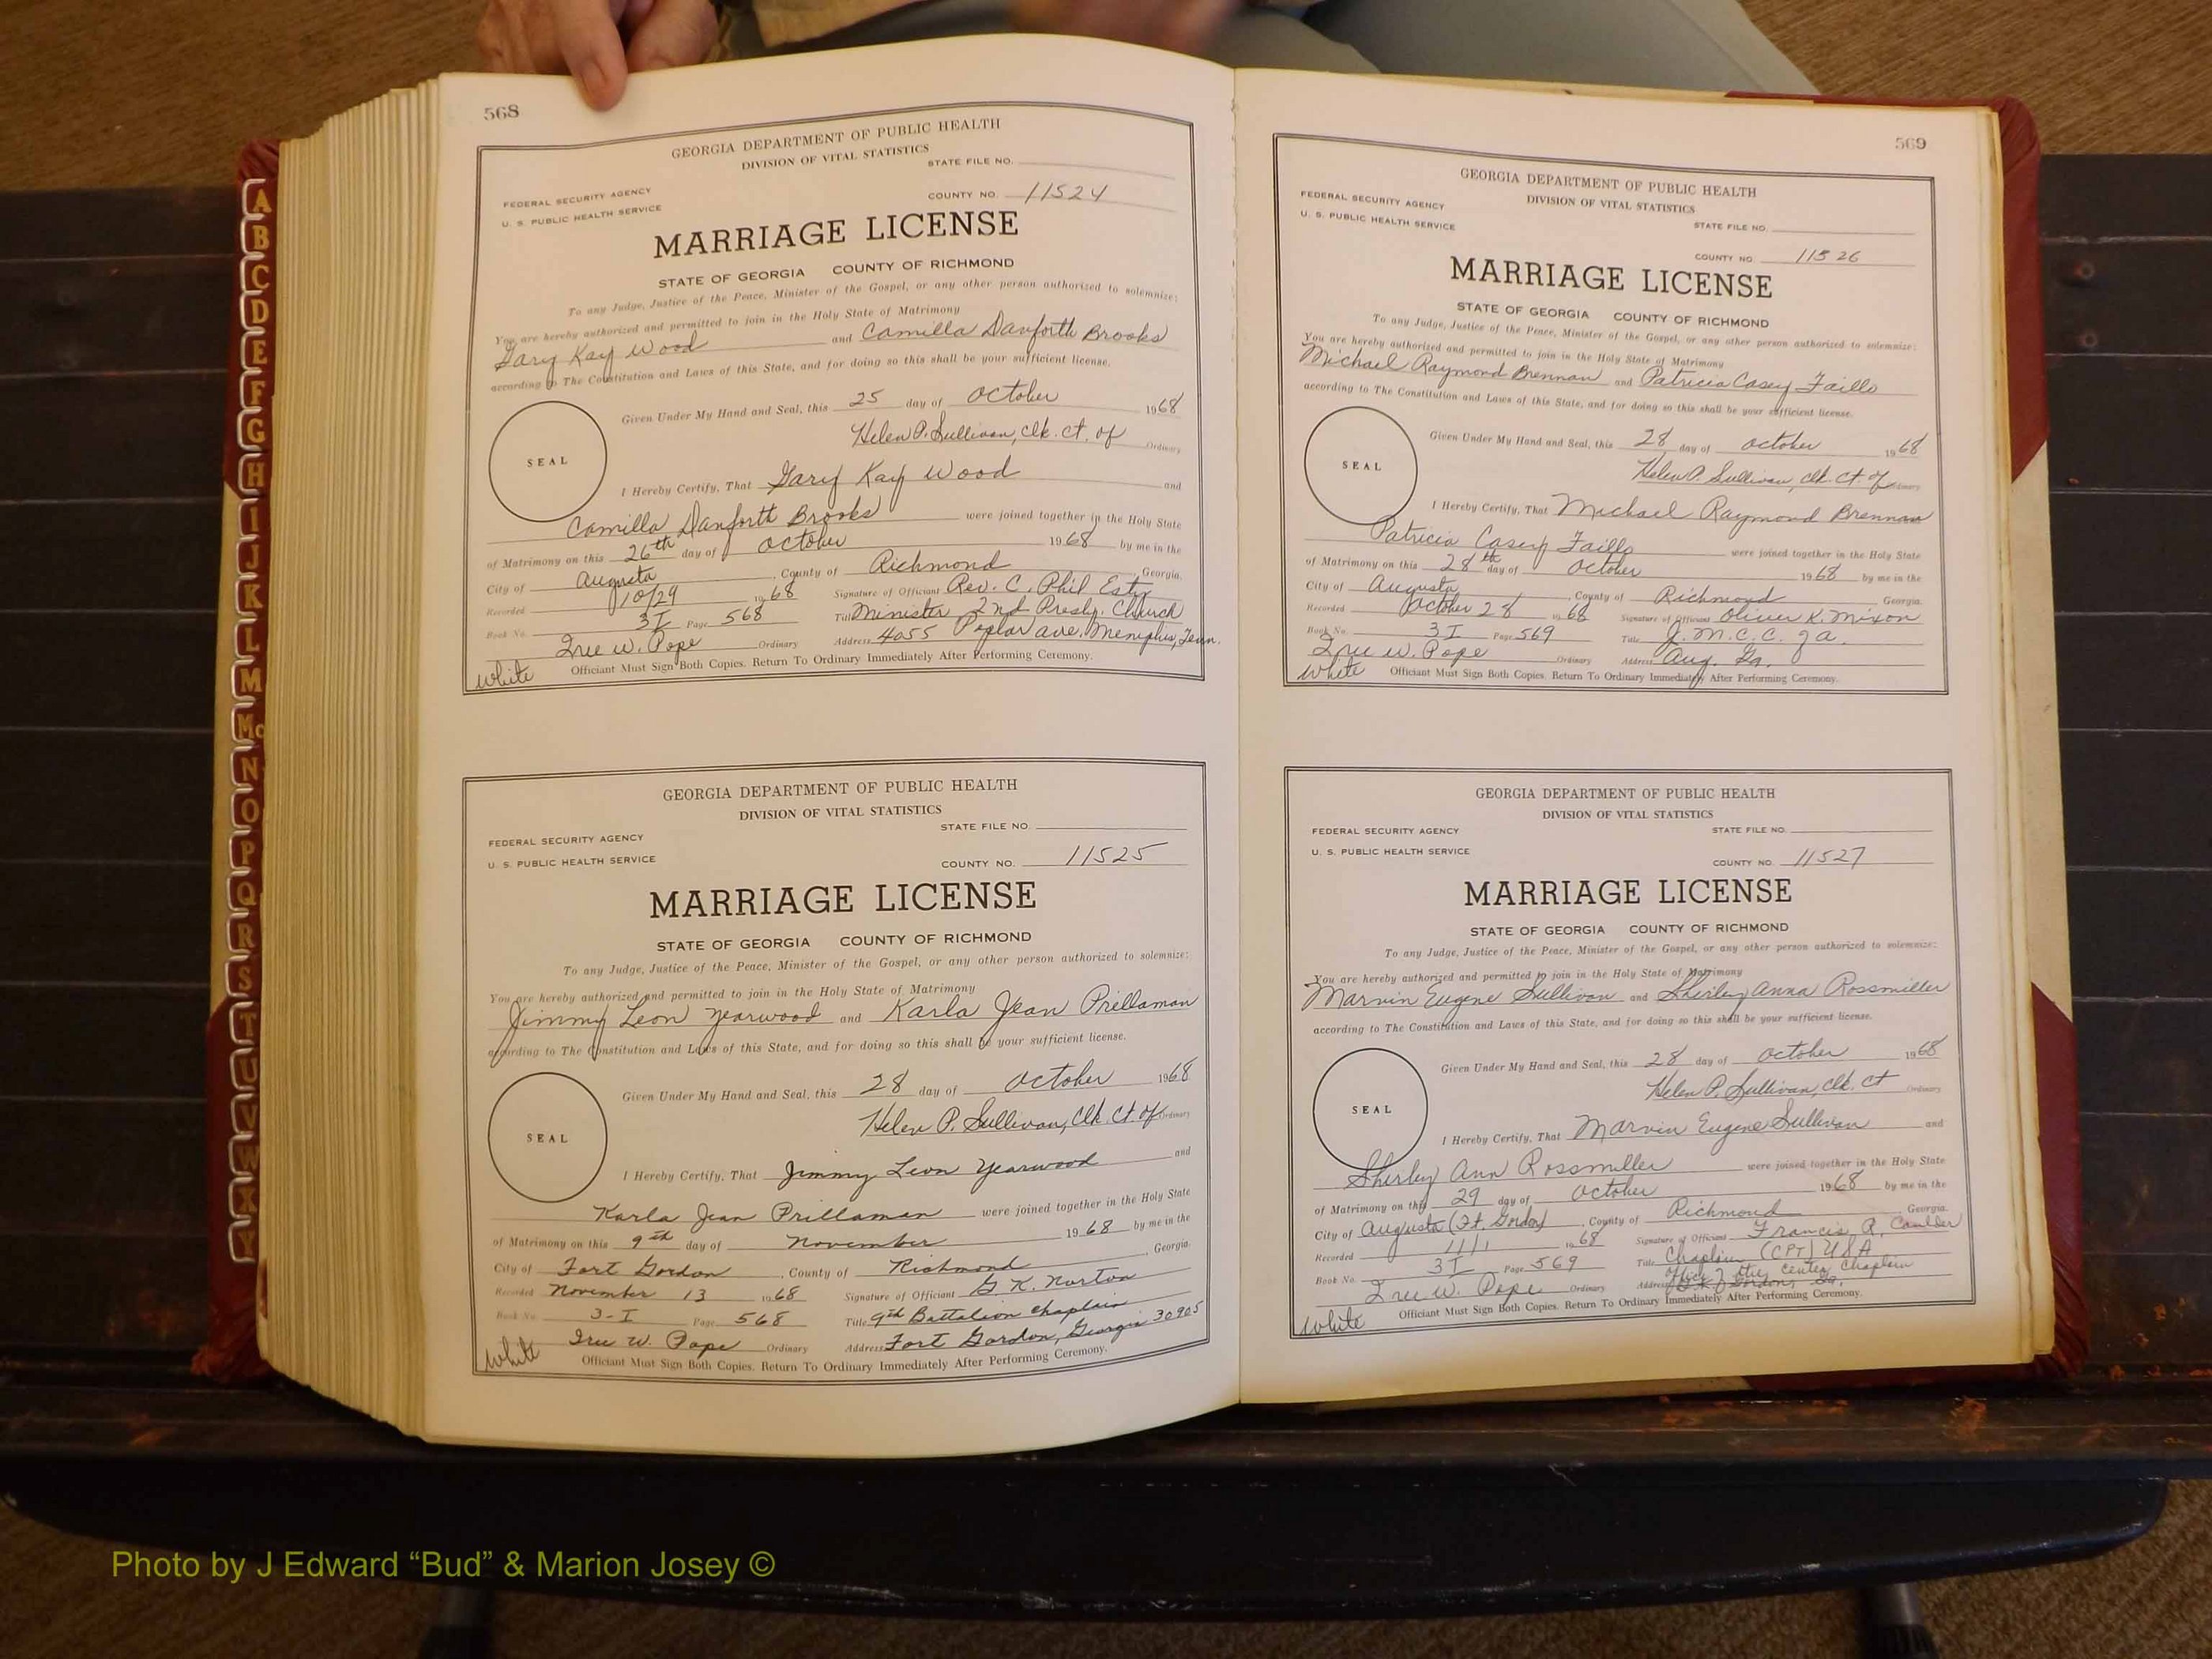 568
GEORGIA DEPARTMENT OF PUBLIC HEALTH
DIVISION OF VITAL STATISTICS
STATE FILE NO.
FEDERAL SECURITY AGENCY
U. S. PUBLIC HEALTH SERVICE
COUNTY NO. 11524
MARRIAGE LICENSE
STATE OF GEORGIA COUNTY OF RICHMOND
To any Judge, Justice of the Peace, Minister of the Gospel, or any other person authorized to solemnize:
You are hereby authorized and permitted to join in the Holy State of Matrimony
Gary Kay Wood and Camilla Danforth Brooks
according to The Constitution and Laws of this State, and for doing so this shall be your sufficient license.
Given Under My Hand and Seal, this 25 day of October 1968
Helen P. Sullivan, Clk. Ct. of Ordinary
SEAL
I Hereby Certify, That Gary Kay Wood and
Camilla Danforth Brooks were joined together in the Holy State
of Matrimony on this 26th day of October 1968 by me in the
City of Augusta, County of Richmond, Georgia.
Recorded 10/29 1968 Signature of Officiant Rev. C. Phil Esty
Book No. 3I Page 568 Title Minister 2nd Presby. Church
Ordinary Address 4055 Poplar Ave. Memphis, Tenn.
Officiant Must Sign Both Copies. Return To Ordinary Immediately After Performing Ceremony.
White
GEORGIA DEPARTMENT OF PUBLIC HEALTH
DIVISION OF VITAL STATISTICS
STATE FILE NO.
FEDERAL SECURITY AGENCY
U. S. PUBLIC HEALTH SERVICE
COUNTY NO. 11525
MARRIAGE LICENSE
STATE OF GEORGIA COUNTY OF RICHMOND
To any Judge, Justice of the Peace, Minister of the Gospel, or any other person authorized to solemnize:
You are hereby authorized and permitted to join in the Holy State of Matrimony
Jimmy Leon Yearwood and Karla Jean Prillaman
according to The Constitution and Laws of this State, and for doing so this shall be your sufficient license.
Given Under My Hand and Seal, this 28 day of October 1968
Helen P. Sullivan, Clk. Ct. of Ordinary
SEAL
I Hereby Certify, That Jimmy Leon Yearwood and
Karla Jean Prillaman were joined together in the Holy State
of Matrimony on this 9th day of November 1968 by me in the
City of Fort Gordon, County of Richmond, Georgia.
Recorded November 13 1968 Signature of Officiant G. K. Norton
Book No. 3-I Page 568 Title 9th Battalion Chaplain
W. Pope Ordinary Address Fort Gordon, Georgia 30905
Officiant Must Sign Both Copies. Return To Ordinary Immediately After Performing Ceremony.
White
569
GEORGIA DEPARTMENT OF PUBLIC HEALTH
DIVISION OF VITAL STATISTICS
FEDERAL SECURITY AGENCY
U. S. PUBLIC HEALTH SERVICE
STATE FILE NO.
COUNTY NO. 11526
MARRIAGE LICENSE
STATE OF GEORGIA COUNTY OF RICHMOND
To any Judge, Justice of the Peace, Minister of the Gospel, or any other person authorized to solemnize:
You are hereby authorized and permitted to join in the Holy State of Matrimony
Michael Raymond Brennan and Patricia Casey Faillo
according to The Constitution and Laws of this State, and for doing so this shall be your sufficient license.
Given Under My Hand and Seal, this 28 day of October 1968
Helen P. Sullivan, Clk. Ct of Ordinary
SEAL
I Hereby Certify, That Michael Raymond Brennan
Patricia Casey Faillo were joined together in the Holy State
of Matrimony on this 28th day of October 1968 by me in the
City of Augusta, County of Richmond Georgia.
Recorded October 28 1968 Signature of Officiant Oliver K. Mixon
Book No. 3I Page 569 Title
W. Pope Ordinary Address Aug. Ga.
Officiant Must Sign Both Copies. Return To Ordinary Immediately After Performing Ceremony.
White
GEORGIA DEPARTMENT OF PUBLIC HEALTH
DIVISION OF VITAL STATISTICS
FEDERAL SECURITY AGENCY
STATE FILE NO.
U. S. PUBLIC HEALTH SERVICE
COUNTY NO. 11527
MARRIAGE LICENSE
STATE OF GEORGIA COUNTY OF RICHMOND
To any Judge, Justice of the Peace, Minister of the Gospel, or any other person authorized to solemnize:
You are hereby authorized and permitted to join in the Holy State of Matrimony
Marvin Eugene Sullivan and Shirley Anna Rossmiller
according to The Constitution and Laws of this State, and for doing so this shall be your sufficient license.
Given Under My Hand and Seal, this 28 day of October 1968
Helen P. Sullivan, Clk. Ct Ordinary
SEAL
I Hereby Certify, That Marvin Eugene Sullivan and
Shirley Ann Rossmiller were joined together in the Holy State
of Matrimony on this 29 day of October 1968 by me in the
City of Augusta (Ft Gordon), County of Richmond Georgia.
Recorded 11/1 1968 Signature of Officiant Francis
Book No. 3I Page 569 Title Chaplain (CPT) USA
W. Pope Ordinary Address Office of the Center Chaplain
Gordon, Ga.
Officiant Must Sign Both Copies. Return To Ordinary Immediately After Performing Ceremony.
White
A
B
C
D
E
F
G
H
I
J
K
L
M
Mc
N
O
P
Q
R
S
T
U
V
W
X
Y
Photo by J Edward “Bud” & Marion Josey ©